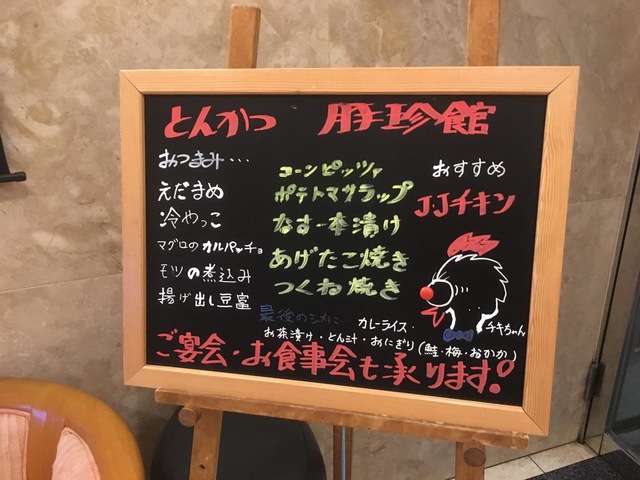 とんかつ 豚珍館
おつまみ・・・
えだまめ
冷やっこ
マグロのカルパッチョ
モツの煮込み
揚げ出し豆富
コーンピッツァ
ポテトマサラップ
なす一本漬け
あげたこ焼き
つくね焼き
おすすめ
J.Jチキン
チキちゃん
最後のシメに… カレーライス・
お茶漬け・とん汁・おにぎり(鮭・梅・おかか)
ご宴会・お食事会も承ります!